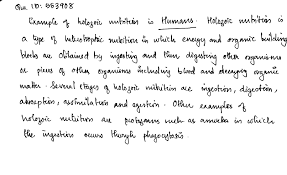 Que. ID: 663908
Example of holozoic nutrition is Humans. Holozoic nutrition is
a type of heterotrophic nutrition in which energy and organic building
blocks are obtained by ingesting and then digesting other organisms
or pieces of other organisms including blood and decaying organic
matter. Several stages of holozoic nutrition are ingestion, digestion,
absorption, assimilation and egestion. Other examples of
holozoic nutrition are protozoans such as amoeba in which
the ingestion occurs through phagocytosis.